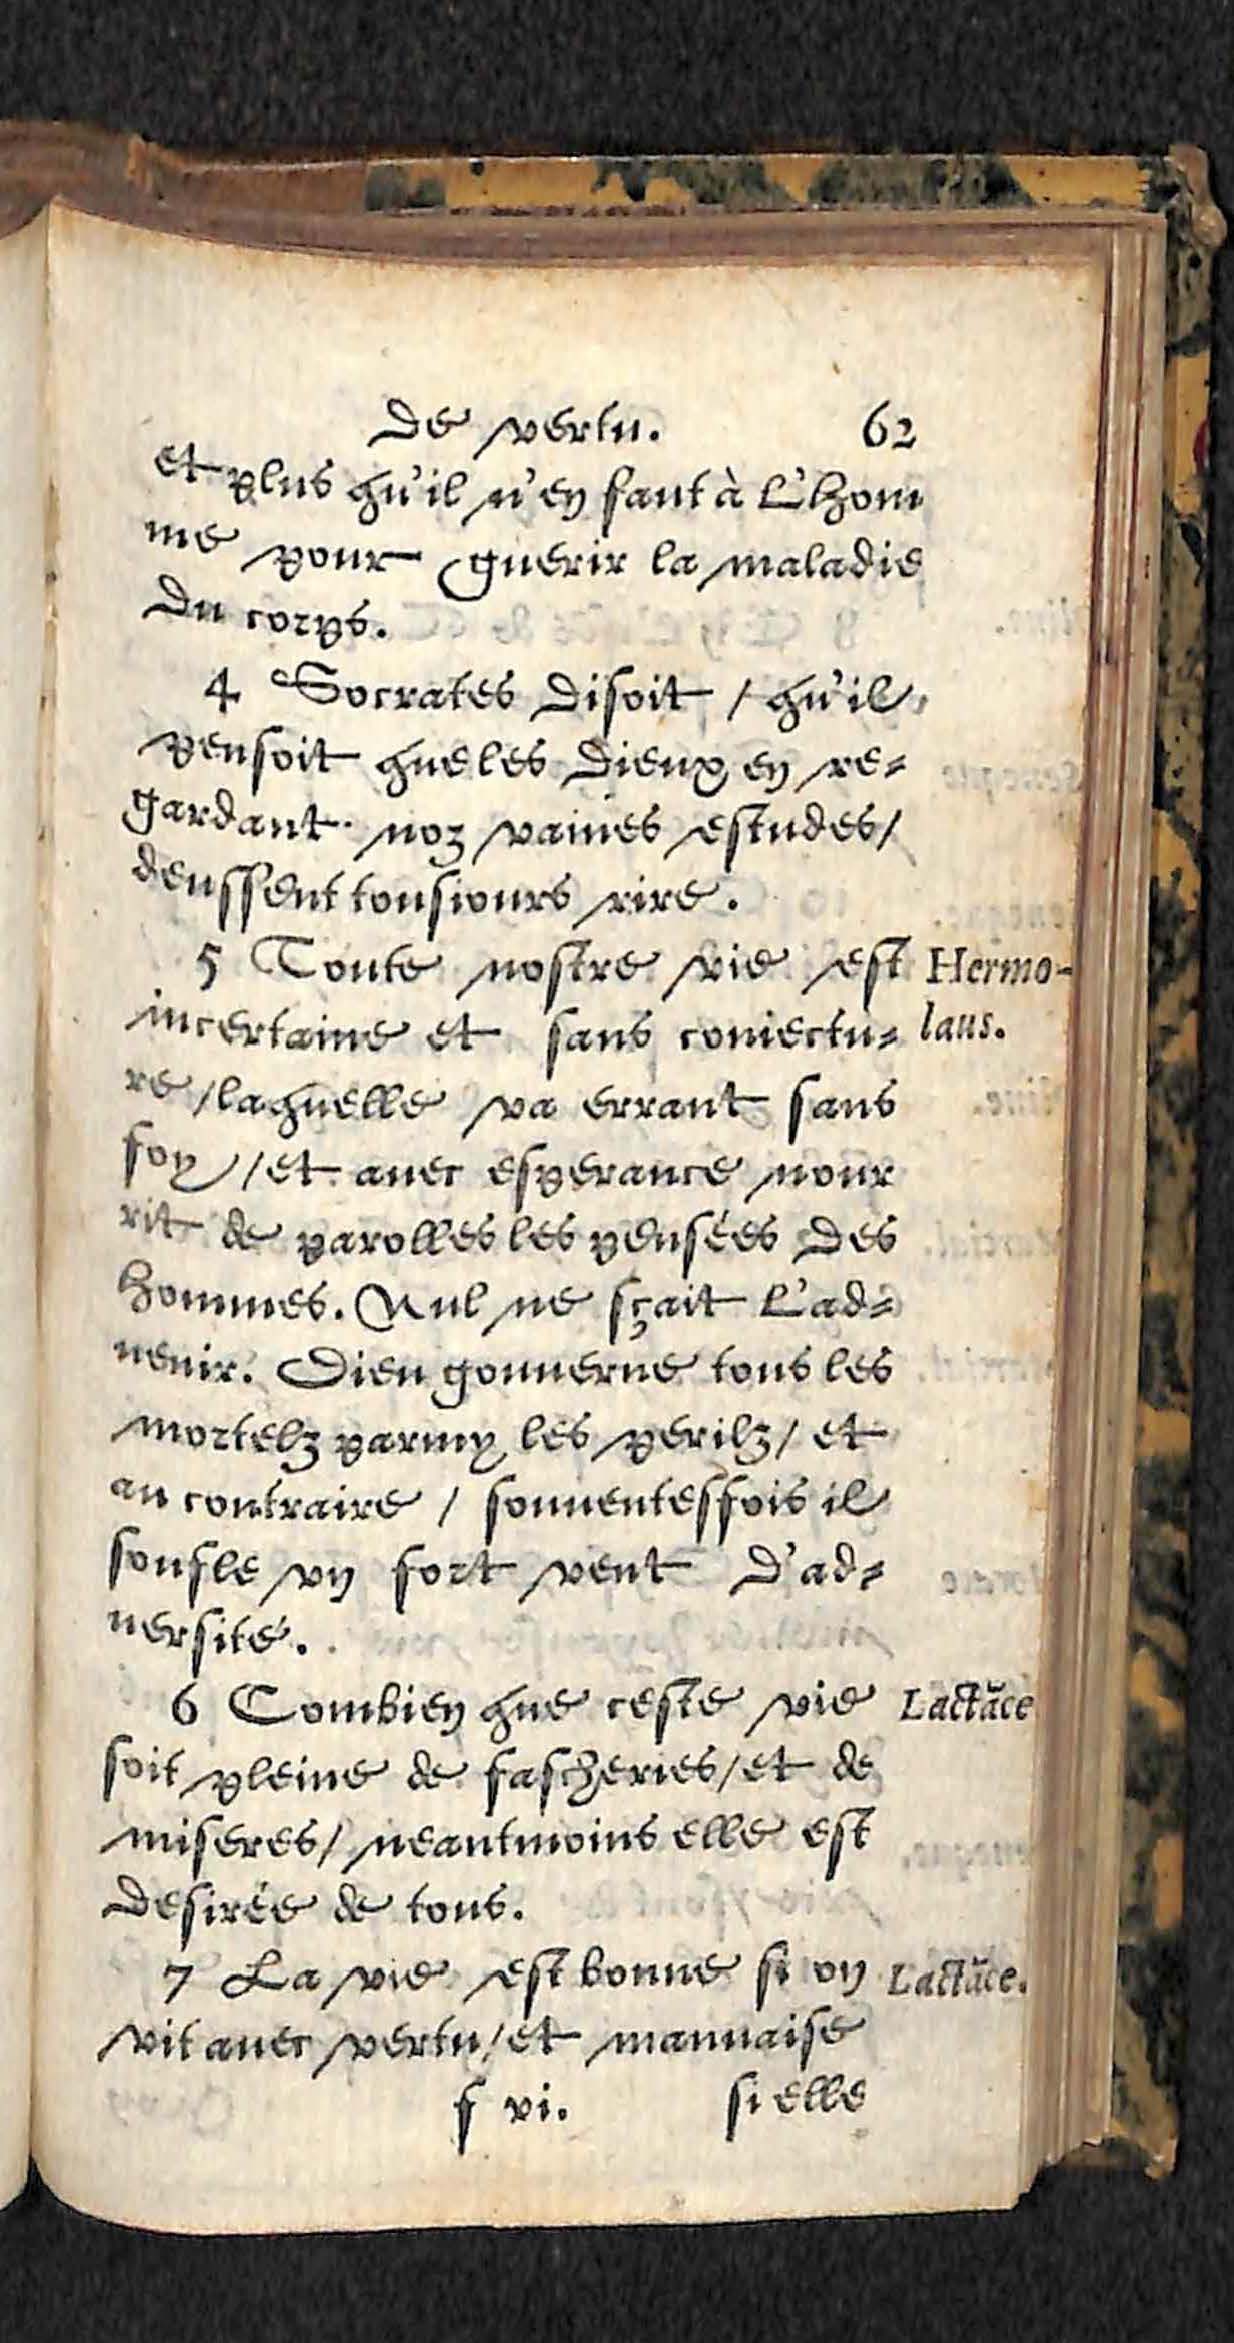 De vertu. 62
et plus qu'il n'en faut à l'hom
me pour guerir la maladie
du corps.
4 Socrates disoit / qu'il
pensoit que les Dieux en re-
gardant noz vaines estudes /
deussent tousiours rire.
5 Toute nostre vie est Hermo-
incertaine et sans coniectu- laus.
re / laquelle va errant sans
foy / et auec esperance nour
rit de parolles les pensées des
hommes. Nul ne sçait l'ad-
uenir. Dieu gouuerne tous les
mortelz parmy les perilz / et
au contraire / souuentesfois il
soufle vn fort vent d'ad-
uersité.
6 Combien que ceste vie Lactãce
soit pleine de fascheries / et de
miseres / neantmoins elle est
desirée de tous.
7 La vie est bonne si on Lactãce.
vit auec vertu / et mauuaise
f vi. si elle